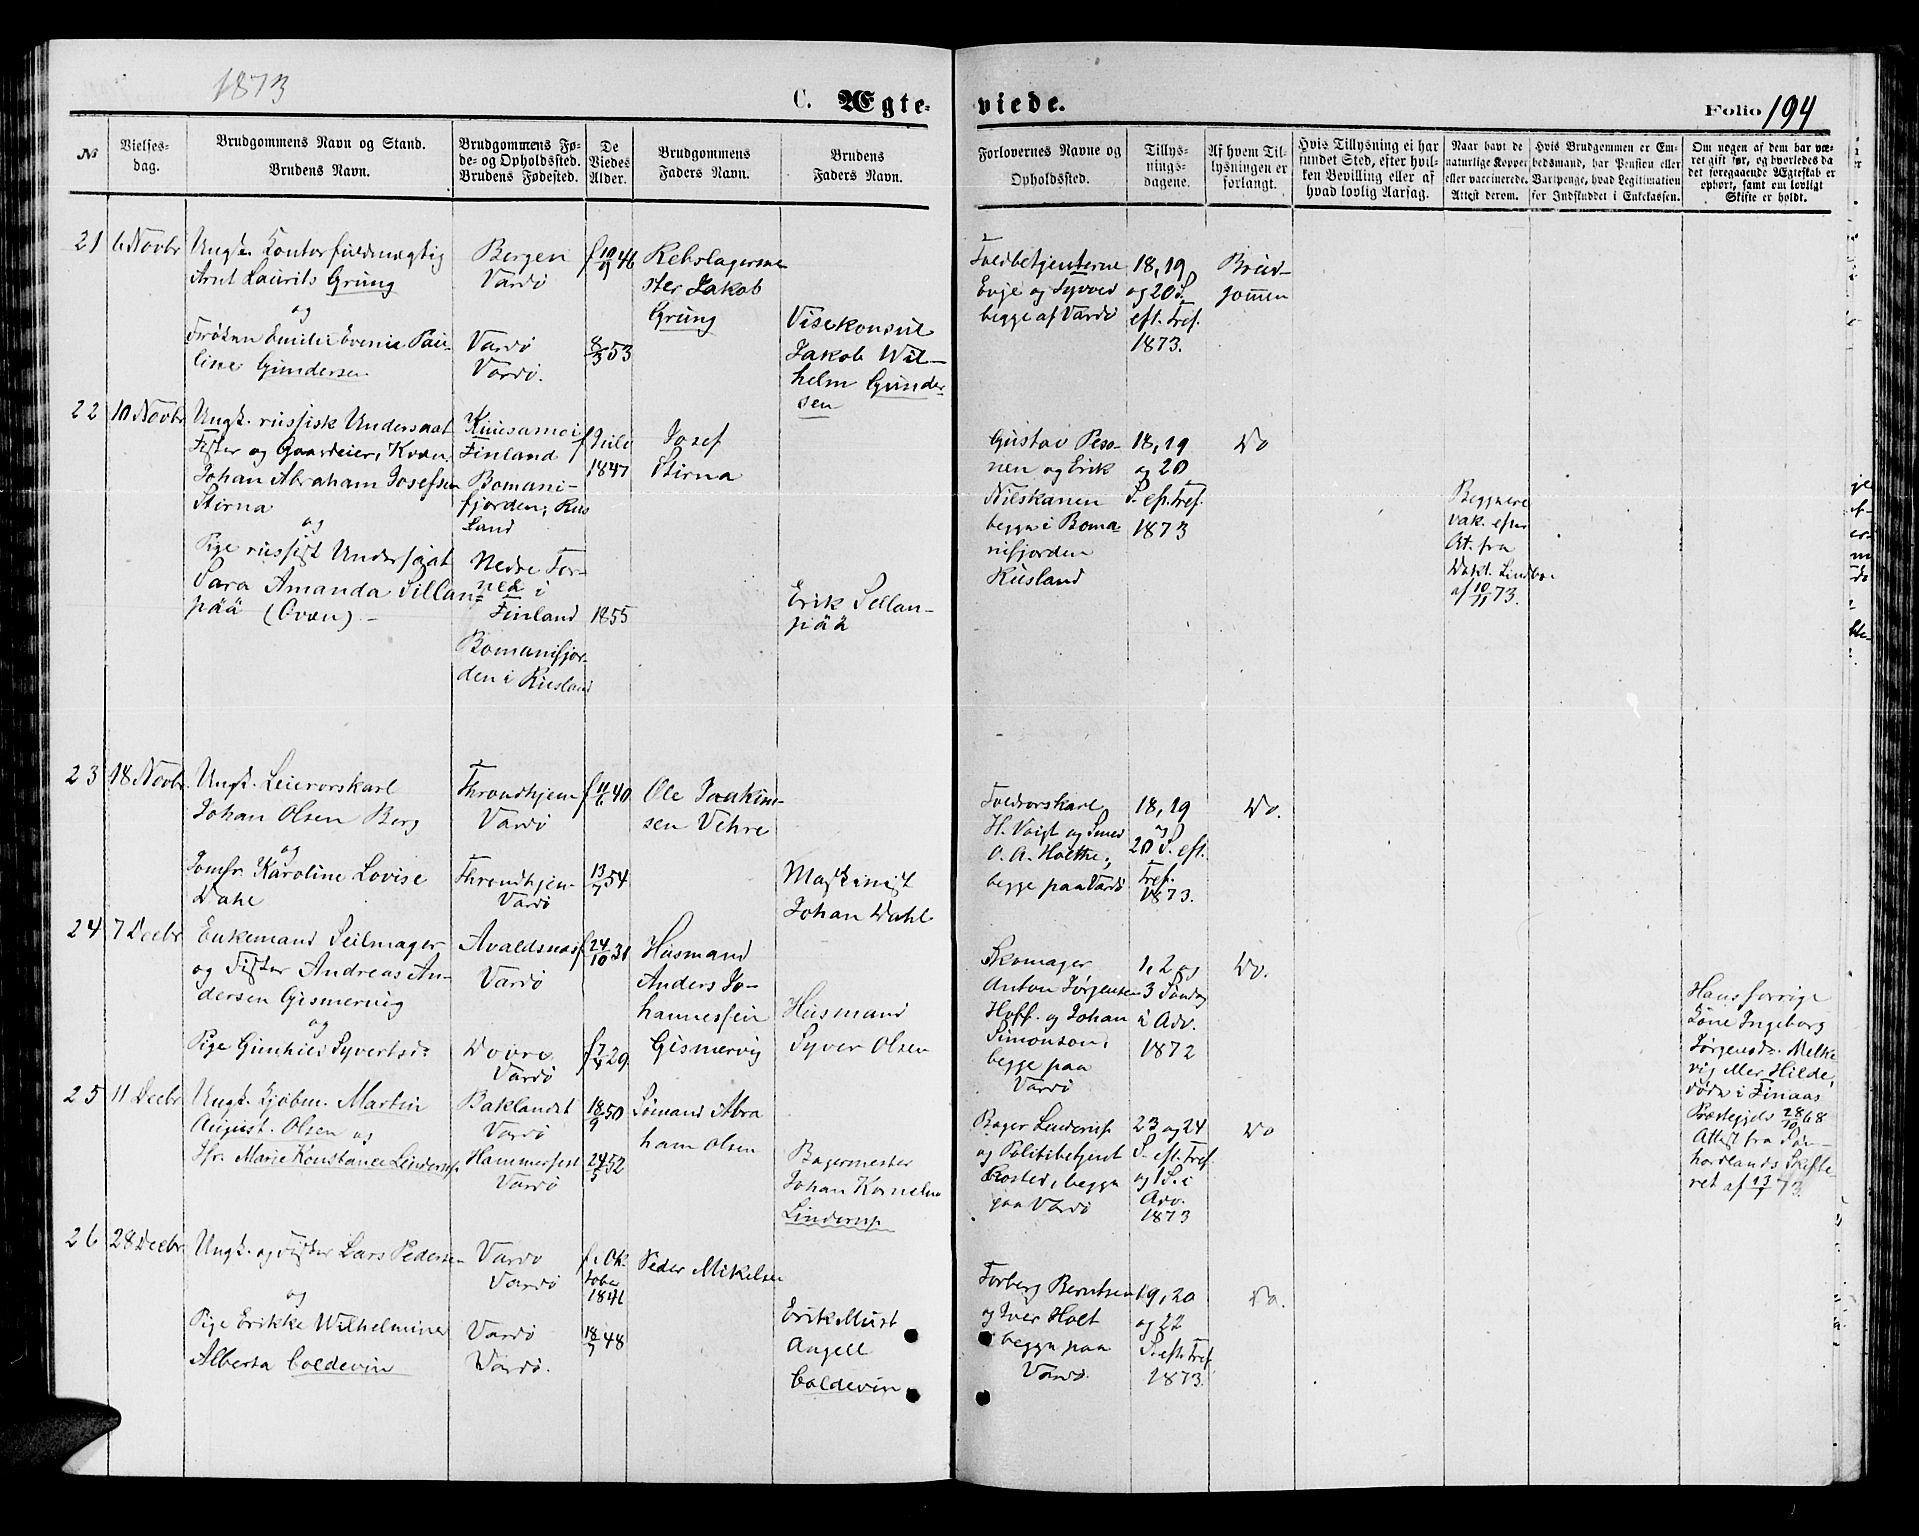 1873
C. Ægte-
viede.
Folio 194
No
Vielses-
dag.
Brudgommens Navn og Stand.
Brudens Navn.
Brudgommens Fø-
de- og Opholdssted.
Brudens Fødested.
De
Viedes
Alder.
Brudgommens
Faders Navn.
Brudens
Faders Navn.
Forlovernes Navne og
Opholdssted.
Tillys-
nings-
dagene.
Af hvem Til-
lysningen er
forlangt.
Hvis Tillysning ei har
fundet Sted, efter hvil-
ken Bevilling eller af
hvad lovlig Aarsag.
Naar havt de
naturlige Kopper
eller vaccinerede.
Attest derom.
Hvis Brudgommen er Em-
bedsmand, har Pension eller
Vartpenge, hvad Legitimation
for Indskuddet i Enkekassen.
Om nogen af dem har væ-
ret gift før, og hvorledes da
det foregaaende Ægteskab er
ophørt, samt om lovligt
Skifte er holdt.
21
6 Novbr
Ungk. Kontorfuldmægtig
Arnt Laurits Grung
og
Frøken Emilie Evenia Pau-
line Gundersen
Bergen
Vardö
Vardö
Vardö.
f 10/9 46
8/3 53
Rebslagerme-
ster Jakob
Grung
Visekonsul
Jakob Wil-
helm Gunder-
sen
Toldbetjenterne
Evje og
begge af Vardö
18, 19
og 20 S.
eft. Tref.
1873.
Brud-
gommen
22
10 Novbr
Ungk. russisk Undersaat
Fisker og Gaardeier, Kvæn
Johan Abraham Josefsen
Stirna
og
Pige russisk Undersaat
Sara Amanda Sillan-
pää (Qvæn) -
Kuusamo i
Finland
Bomani-
fjorden, Rus
land
Nedre Tor-
neå i
Finland
Bomanifjor-
den i Rusland
f Juli
1847
1855
Josef
Stirna
Erik Sellan-
pää
Gustav Peso-
nen og Erik
Nilskanen
begge i Boma
nifjorden
Rusland
18, 19
og 20
S. eft. Tref.
1873
Do
Beggeere
vak. efter
At. fra
Dokt. Lindboe
af 10/11 73.
23
18 Novbr.
Ungk. Leierorskarl
Johan Olsen Berg
og
Jomfr. Karoline Lovise
Dahl
Throndhjem
Vardö
Throndhjem
Vardö
f 11/6 40
13/7 54
Ole Joakim-
sen Vehre
Maskinist
Johan Dahl
Toldrorskarl
H. Voigt og Smed
O. A. Holthe,
begge paa Vardö
18, 19
og
20 S. eft.
Tref.
1873.
Do.
24
7 Decbr
Enkemand Seilmager
og Fisker Andreas An-
dersen Gismervig
og
Pige Gunhild Syvertsd.
Avaldsnæs
Vardö
Dovre
Vardö
f 24/10 31
f 7/4 29
Husmand
Anders Jo-
hannessen
Gismervig
Husmand
Syver Olsen
Skomager
Anton Jörgensen
Hoff. og Johan
Simonsen,
begge paa
Vardö
1, 2 og
3 Söndag
i Adv.
1872
Do.
Hans forrige
Kone Ingeborg
Jörgensd. Melke
vig Hilde,
döde i Finaas
Præstegjeld 28/10 68
Attest fra Sön-
hordlands Skifte-
ret af 13/1 73.
25
11 Decbr
Ungk. Kjöbm. Martin
August. Olsen og
Jfr. Marie Konstance Linderup
Baklandet
Vardö
Hammerfest
Vardö
18/9 50
24/5 52
Sömand Abra
ham Olsen
Bagermester
Johan Kornelius
Linderup
Bager Linderup
og Politibetjent
Rosted, begge
paa Vardö
23 og 24
S. eft. Tref.
og 1 S. i
Adv.
1873
Do
26
28 Decbr
Ungk. og Fisker Lars Pedersen
og
Pige Erikke Wilhelmine
Alberta Coldevin
Vardö
Vardö
Vardö
Vardö.
f. Ok-
tober
1846
18/7 48
Peder Mikelsen
Erik Must
Angell
Coldevin
Torberg Berntsen
og Iver Holt
begge paa
Vardö.
19, 20
og 22
S. eft. Tref.
1873.
Do.